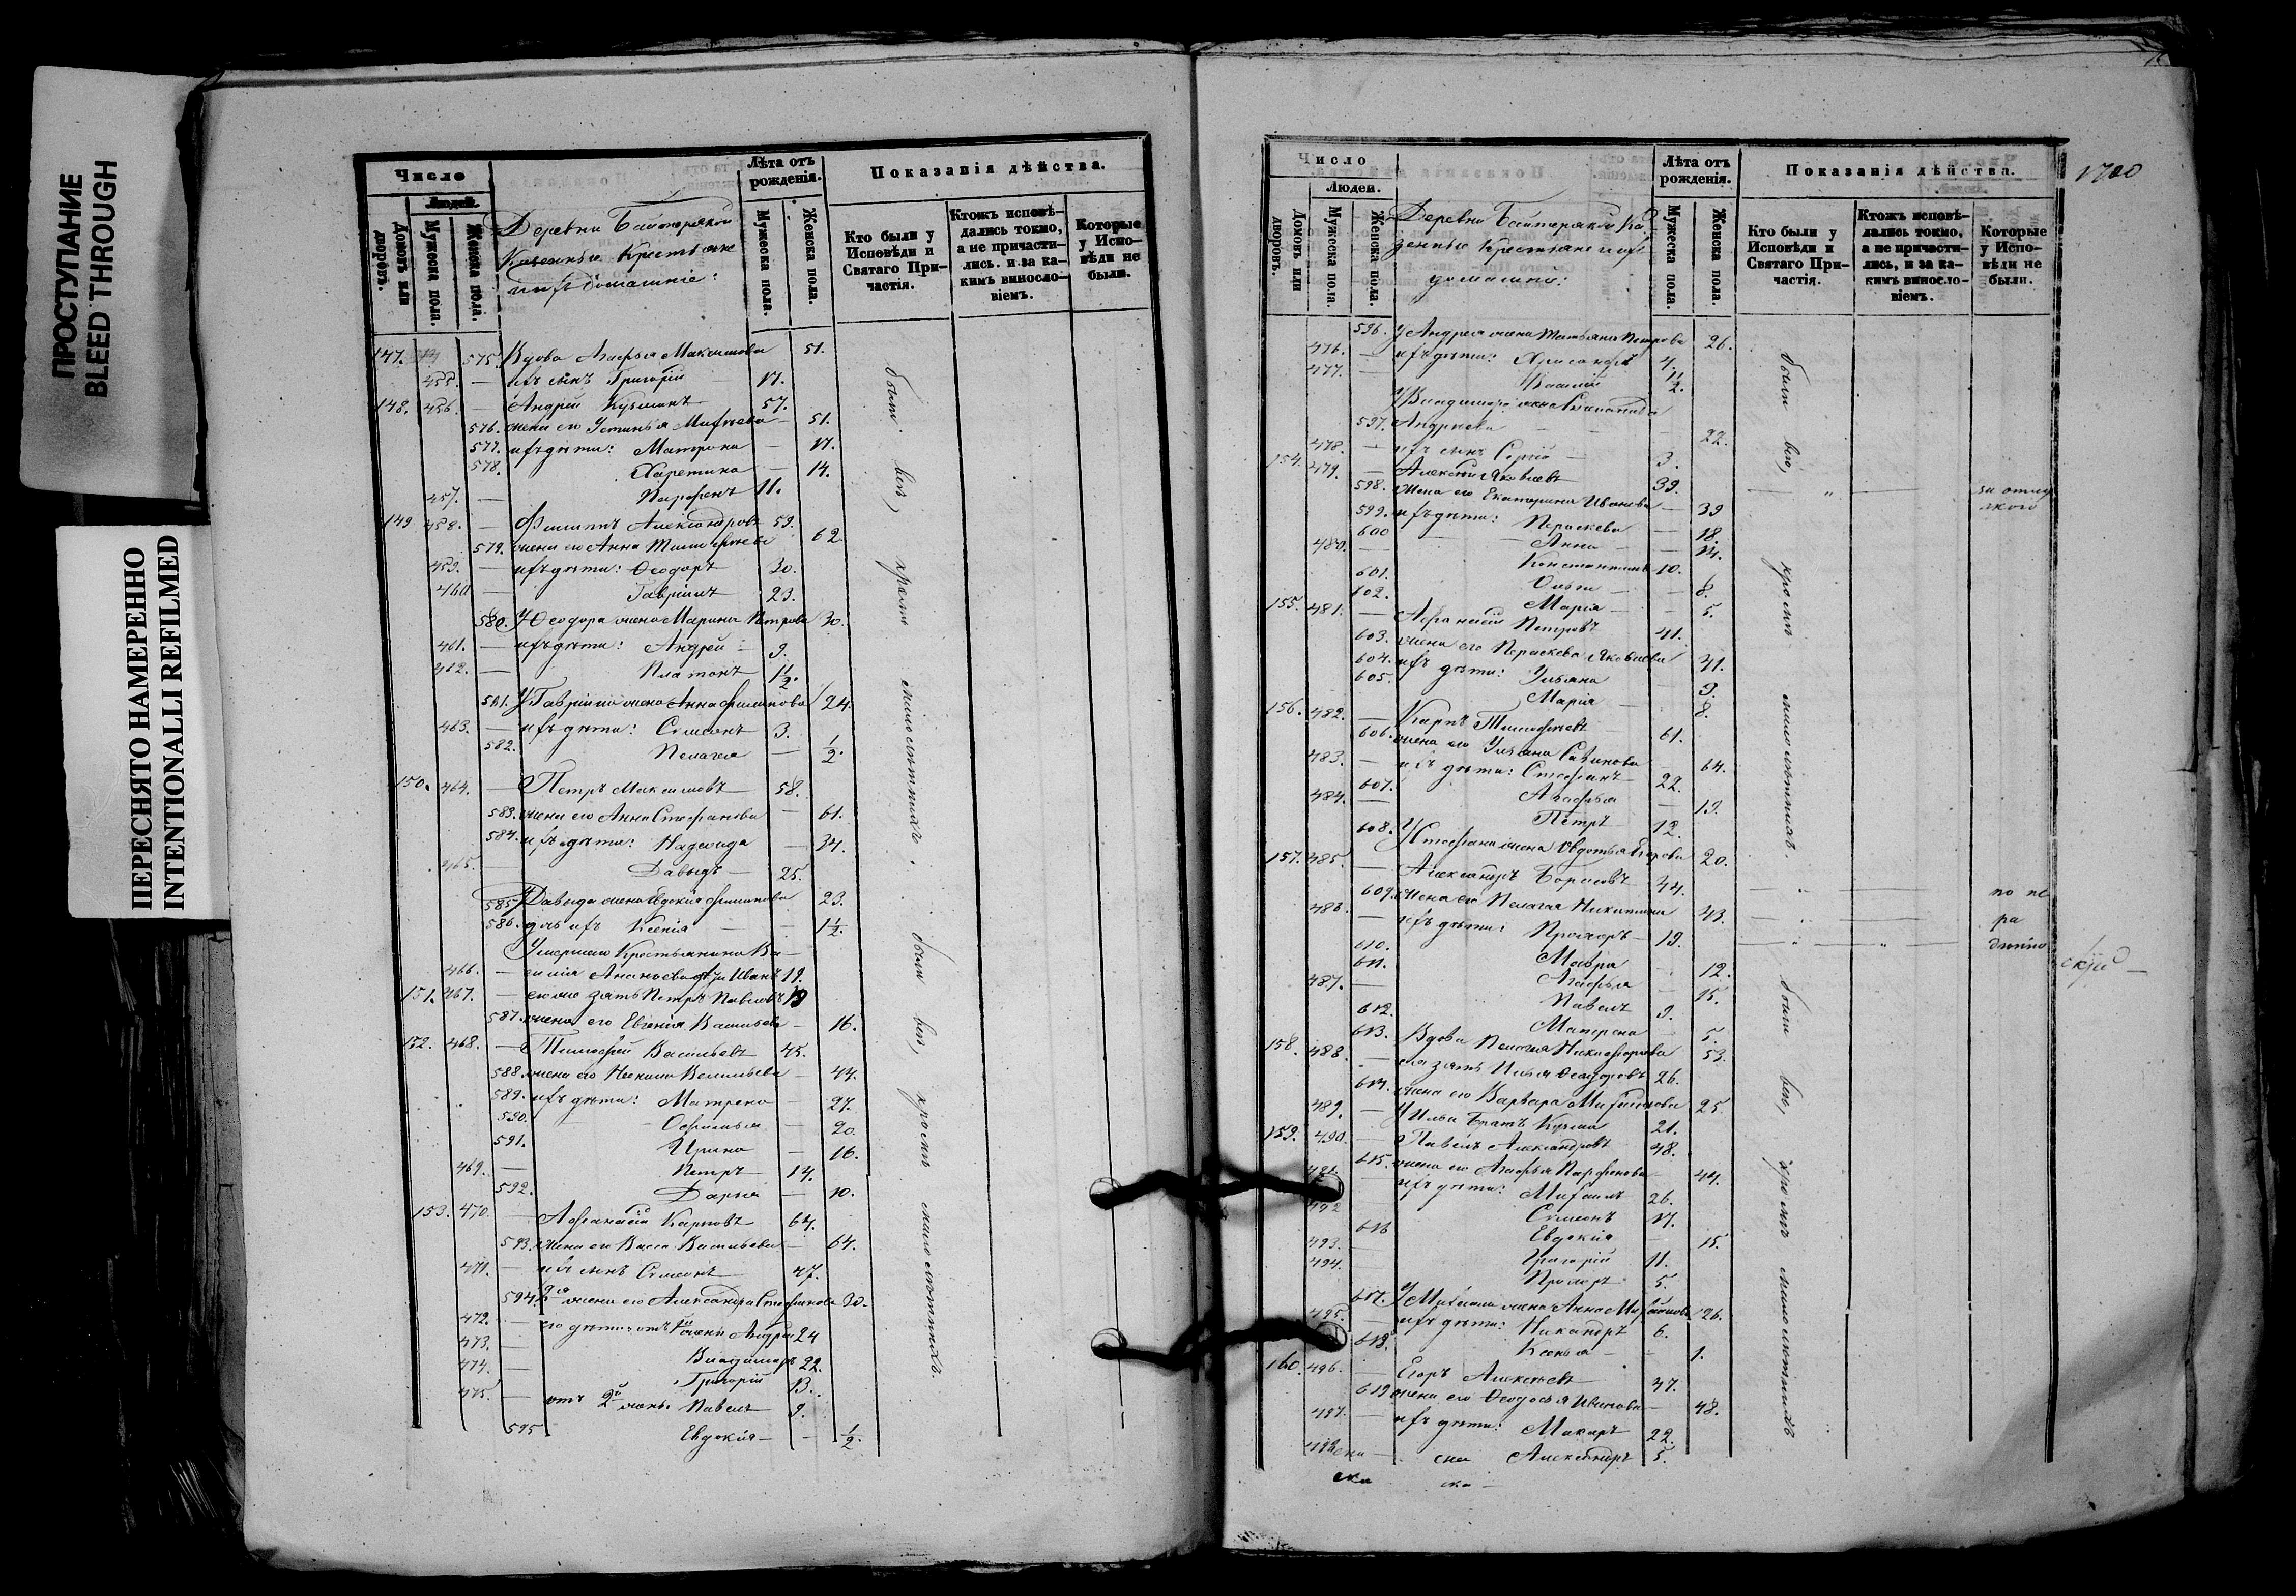 ПРОСТУПАНИЕ
BLEED THROUGH
ПЕРЕСНЯТО НАМЕРЕННО
INTENTIONALLI REFILMED
Число
Людей.
Домовъ или дворовъ.
Мужеска пола.
Женска пола.
Деревни
Казенные Крестьяне
и ихъ домашніе:
Лѣта отъ рожденія.
Мужеска пола.
Женска пола.
Показанія дѣйства.
Кто были у Исповѣди и Святаго При-частія.
Ктожъ исповѣ-дались токмо, а не причасти-лись. и за ка-кимъ винослo-віемъ.
Которые у Испо-вѣди не были.
147. 575. Вдова Агафья Максимова 51.
455. — ея сынъ Григорій 17.
148. 456. — Андрей Кузминъ 57.
576. жена его Устинья Михеева — 51.
577. ихъ дѣти: Матрона — 17.
578. Харитина — 14.
457. — Парфенъ 11.
149. 458. — Филиппъ Александровъ 59.
579. жена его Анна Тимофеева 62.
459. — ихъ дѣти: Ѳеодоръ 30.
460. — Гавріилъ 23.
580. У Ѳеодора жена Марина Петрова 30.
461. — ихъ дѣти: Андрей — 9.
462. — Платонъ 1 1/2.
581. У Гавріила жена Анна Филипова 24.
463. — ихъ дѣти: Симеонъ 3.
582. Пелагея — 1/2.
150. 464. — Петръ Максимовъ 58.
583. жена его Анна Стефанова — 61.
584. ихъ дѣти: Надежда — 34.
465. — Давыдъ — 25.
585. У Давыда жена Евдокія Филипова 23.
586. дочь ихъ Ксенія — 1 1/2.
Умершаго Крестьянина Ва-
466. — силія Ананьева Иванъ 19.
151. 467. — зять Петръ Павловъ 19
587. жена его Евгенія Васильева — 16.
152. 468. — Тимофей Васильевъ 45.
588. жена его Васильева — 44.
589. ихъ дѣти: Матрена — 27.
590. Офимья — 20.
591. Ирина — 16.
469. — Петръ — 14.
592. Дарья — 10.
153. 470. — Афанасій Карповъ 64.
593. жена его Васса Васильева — 64.
471. — ихъ сынъ Симеонъ 47.
594. 2я жена его Александра Стефанова 30.
472. — его дѣти отъ 1й жены Андрей 24
473. — Владимиръ 22.
474. — Григорій 13.
475. — отъ 2й жены Павелъ 9.
595 Евдокія — 1/2.
были всѣ, кромѣ малолѣтнихъ.
были всѣ, кромѣ малолѣтнихъ.
1700
Число
Людей.
Домовъ или дворовъ.
Мужеска пола.
Женска пола.
Деревни Ка-
зенные Крестьяне и ихъ
домашніе:
Лѣта отъ рожденія.
Мужеска пола.
Женска пола.
Показанія дѣйства.
Кто были у Исповѣди и Святаго При-частія.
Ктожъ исповѣ-дались токмо, а не причасти-лись, и за ка-кимъ винослo-віемъ.
Которые у Испо-вѣди не были.
596. У Андрея жена Татьяна Петрова 26.
476. — ихъ дѣти: 4.
477. — Василій 1/2.
У Владимира жена
597. Андреева — 22.
478. — ихъ сынъ Сергій — 3.
154. 479. — Алексѣй Яковлевъ 39.
598. жена его Екатерина Иванова — 39
599. ихъ дѣти: Параскева — 18.
600 Анна — 14.
480. — Константинъ 10.
601. — 8.
602. Марія — 5.
155. 481. — Афанасій Петровъ 41.
603. жена его Параскева Яковлева 41.
604. ихъ дѣти: Ульяна 9.
605. Марія — 8.
156. 482. — Карпъ Тимофеевъ 61.
606. жена его Ульяна Савинова — 64.
483. — ихъ дѣти: Стефанъ 22.
607. Агафья — 19.
484. — Петръ 12.
608. У Стефана жена Овдотья Егорова 20.
157. 485. — Александръ Борисовъ 44.
609. жена его Пелагея Никитина 43.
486. — ихъ дѣти: Прохоръ — 19.
610. Мавра 12.
611. Агафья 15.
487. — Павелъ 9.
612. Матрена — 5.
613. Вдова Пелагея Никифорова 53.
158. 488. — ея зять Илья Ѳеодоровъ 26.
614. жена его Варвара Михайлова 25.
489. — У Ильи братъ Кузма 21.
159. 490. — Павелъ Александровъ 48.
615. жена его Агафья Парфенова 44.
491. ихъ дѣти: Михаилъ 26.
492 Симеонъ 17.
616 Евдокія 15.
493. — Григорій 11.
494. Прохоръ 5.
617. У Михаила жена Анна Михайлова 26.
495. ихъ дѣти: Никандръ 6.
618. Ксенья — 1.
160. 496. — Егоръ Алексѣевъ 47.
619 жена его Ѳеодосья Иванова — 48.
497. — ихъ дѣти: Макаръ 22.
498 Александръ 5.
были всѣ, кромѣ малолѣтнихъ.
были всѣ, кромѣ малолѣтнихъ